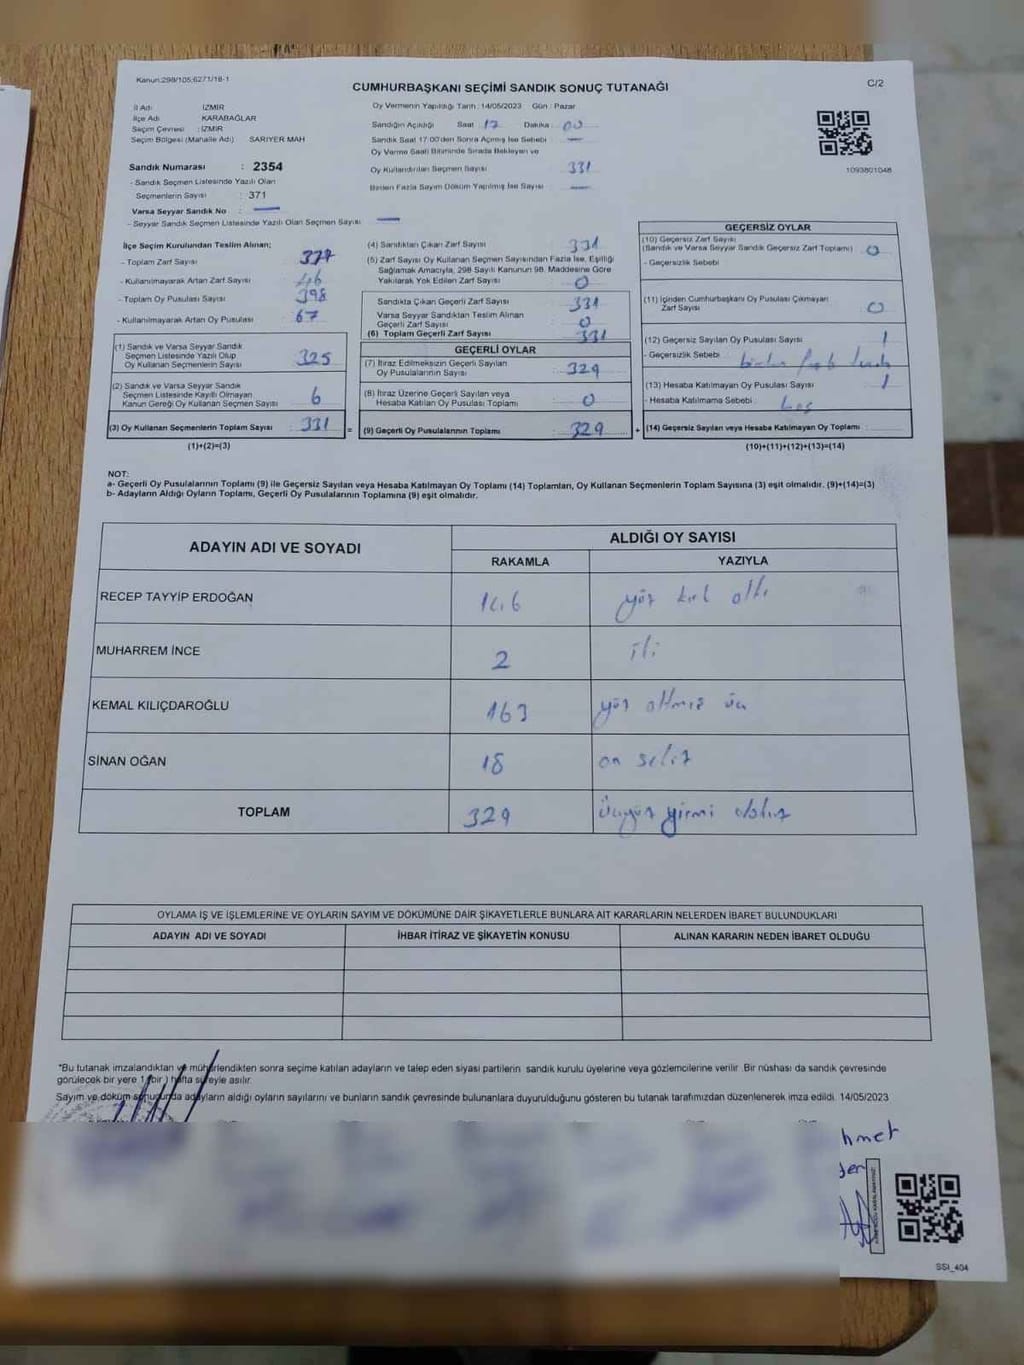 Kanun:298/105;6271/18-1
CUMHURBAŞKANI SEÇİMİ SANDIK SONUÇ TUTANAĞI
C/2
İl Adı : İZMİR
İlçe Adı : KARABAĞLAR
Seçim Çevresi : İZMİR
Seçim Bölgesi (Mahalle Adı) SARIYER MAH
Oy Vermenin Yapıldığı Tarih : 14/05/2023 Gün : Pazar
Sandığın Açıldığı Saat : 17 Dakika : 00
Sandık Saat 17:00'den Sonra Açılmış İse Sebebi : —
Oy Verme Saati Bitiminde Sırada Bekleyen ve
Oy Kullandırılan Seçmen Sayısı : 331
Birden Fazla Sayım Döküm Yapılmış İse Sayısı : —
1093801048
Sandık Numarası : 2354
- Sandık Seçmen Listesinde Yazılı Olan
Seçmenlerin Sayısı : 371
Varsa Seyyar Sandık No : —
- Seyyar Sandık Seçmen Listesinde Yazılı Olan Seçmen Sayısı : —
İlçe Seçim Kurulundan Teslim Alınan;
- Toplam Zarf Sayısı : 377
- Kullanılmayarak Artan Zarf Sayısı : 46
- Toplam Oy Pusulası Sayısı : 398
- Kullanılmayarak Artan Oy Pusulası : 67
(1) Sandık ve Varsa Seyyar Sandık
Seçmen Listesinde Yazılı Olup
Oy Kullanan Seçmenlerin Sayısı : 325
(2) Sandık ve Varsa Seyyar Sandık
Seçmen Listesinde Kayıtlı Olmayan
Kanun Gereği Oy Kullanan Seçmen Sayısı : 6
(3) Oy Kullanan Seçmenlerin Toplam Sayısı : 331
(1)+(2)=(3)
(4) Sandıktan Çıkan Zarf Sayısı : 331
(5) Zarf Sayısı Oy Kullanan Seçmen Sayısından Fazla İse, Eşitliği
Sağlamak Amacıyla, 298 Sayılı Kanunun 98. Maddesine Göre
Yakılarak Yok Edilen Zarf Sayısı : 0
Sandıkta Çıkan Geçerli Zarf Sayısı : 331
Varsa Seyyar Sandıktan Teslim Alınan
Geçerli Zarf Sayısı : 0
(6) Toplam Geçerli Zarf Sayısı : 331
GEÇERLİ OYLAR
(7) İtiraz Edilmeksizin Geçerli Sayılan
Oy Pusulalarının Sayısı : 329
(8) İtiraz Üzerine Geçerli Sayılan veya
Hesaba Katılan Oy Pusulası Toplamı : 0
= (9) Geçerli Oy Pusulalarının Toplamı : 329
GEÇERSİZ OYLAR
(10) Geçersiz Zarf Sayısı
(Sandık ve Varsa Seyyar Sandık Geçersiz Zarf Toplamı) : 0
- Geçersizlik Sebebi :
(11) İçinden Cumhurbaşkanı Oy Pusulası Çıkmayan
Zarf Sayısı : 0
(12) Geçersiz Sayılan Oy Pusulası Sayısı : 1
- Geçersizlik Sebebi :
(13) Hesaba Katılmayan Oy Pusulası Sayısı : 1
- Hesaba Katılmama Sebebi : boş
+ (14) Geçersiz Sayılan veya Hesaba Katılmayan Oy Toplamı :
(10)+(11)+(12)+(13)=(14)
NOT:
a- Geçerli Oy Pusulalarının Toplamı (9) ile Geçersiz Sayılan veya Hesaba Katılmayan Oy Toplamı (14) Toplamları, Oy Kullanan Seçmenlerin Toplam Sayısına (3) eşit olmalıdır. (9)+(14)=(3)
b- Adayların Aldığı Oyların Toplamı, Geçerli Oy Pusulalarının Toplamına (9) eşit olmalıdır.
ADAYIN ADI VE SOYADI
ALDIĞI OY SAYISI
RAKAMLA YAZIYLA
RECEP TAYYİP ERDOĞAN 146 yüz kırk altı
MUHARREM İNCE 2 iki
KEMAL KILIÇDAROĞLU 163 yüz altmış üç
SİNAN OĞAN 18 on sekiz
TOPLAM 329 üçyüz yirmi dokuz
OYLAMA İŞ VE İŞLEMLERİNE VE OYLARIN SAYIM VE DÖKÜMÜNE DAİR ŞİKAYETLERLE BUNLARA AİT KARARLARIN NELERDEN İBARET BULUNDUKLARI
ADAYIN ADI VE SOYADI İHBAR İTİRAZ VE ŞİKAYETİN KONUSU ALINAN KARARIN NEDEN İBARET OLDUĞU
*Bu tutanak imzalandıktan ve mühürlendikten sonra seçime katılan adayların ve talep eden siyasi partilerin sandık kurulu üyelerine veya gözlemcilerine verilir. Bir nüshası da sandık çevresinde
görülecek bir yere 1 (bir) hafta süreyle asılır.
Sayım ve döküm sonucunda adayların aldığı oyların sayılarını ve bunların sandık çevresinde bulunanlara duyurulduğunu gösteren bu tutanak tarafımızdan düzenlenerek imza edildi. 14/05/2023
hmet
SSI_404